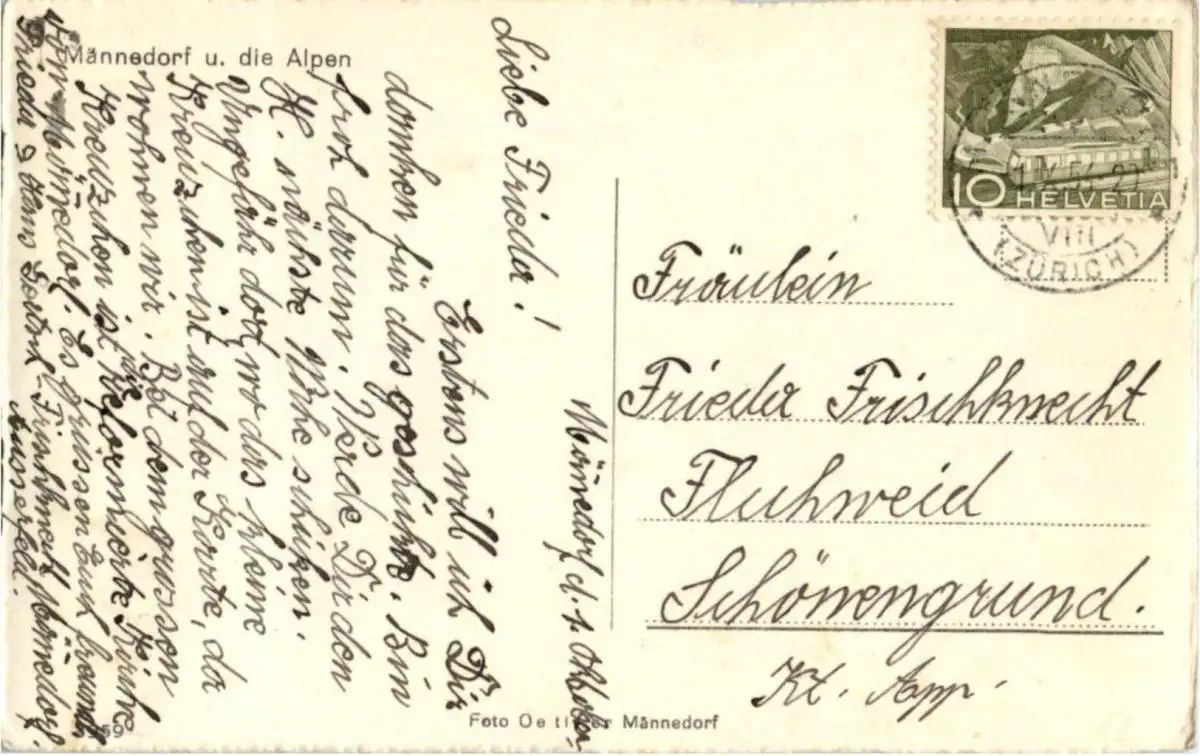 Männedorf u. die Alpen
Männedorf d. 1. Oktober
Liebe Frieda!
Erstens will ich Dir
danken für das geschickte. Bin
froh darum. Werde Dir den
K. nächste Woche schicken.
Ungefähr dort wo das kleine
Kreuzchen ist auf der Karte, da
wohnen wir. Bei dem grossen
Kreuzchen ist die reformierte Kirche
von Männedorf. Es grüssen Euch
Frieda & Hans Frischknecht Männedorf.
Ausserfeld.
Foto Oetiker Männedorf
959
10 HELVETIA
VIII
(ZÜRICH)
Fräulein
Frieda Frischknecht
Fluhweid
Schönengrund.
Kt. App.